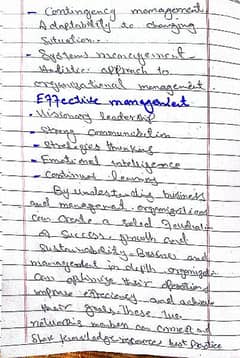 - Contingency management
Adaptability to changing
Situation.
- Systems management -
Holistic approach to
organizational management.
Effective management
- Visionary leadership
- Strong communication
- Strategies thinking
- Emotional intelligence
- Continued learning
By understanding business
and management. organizations
can create a solid foundation
of success growth and
Sustainability. Business and
management in depth. organizati
can optimize their operations
improve efficiency and achieve
their goals. These
members can connect and
Share knowledge resource best practice